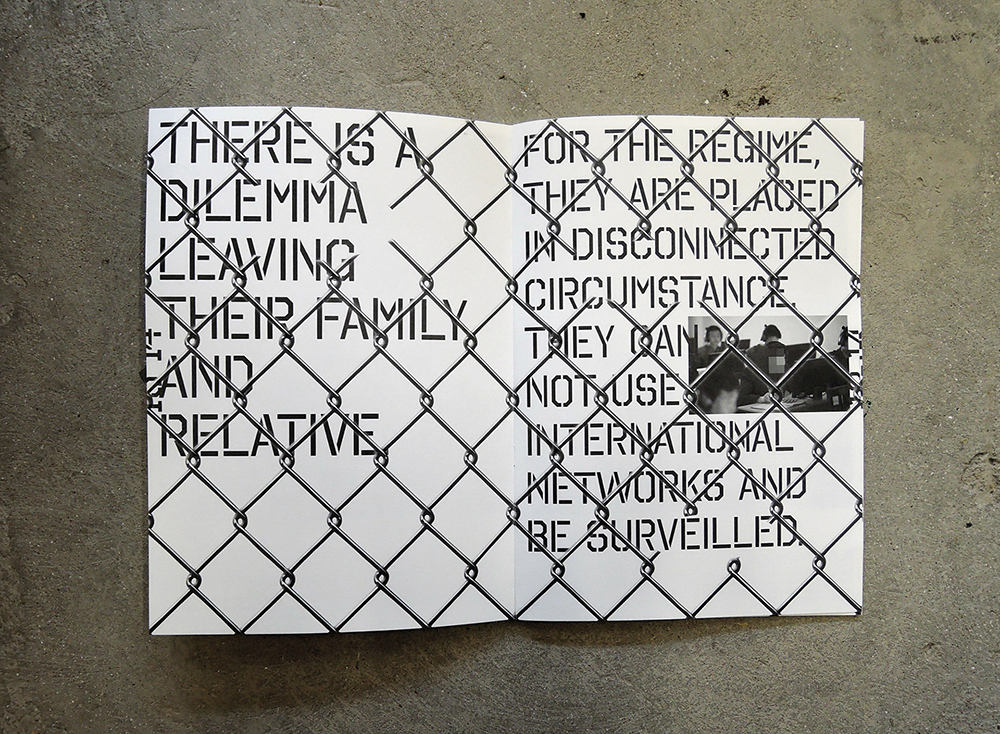 THERE IS A
DILEMMA
LEAVING
THEIR FAMILY
AND
RELATIVE
FOR THE REGIME,
THEY ARE PLACED
IN DISCONNECTED
CIRCUMSTANCE.
THEY CAN
NOT USE
INTERNATIONAL
NETWORKS AND
BE SURVEILLED.